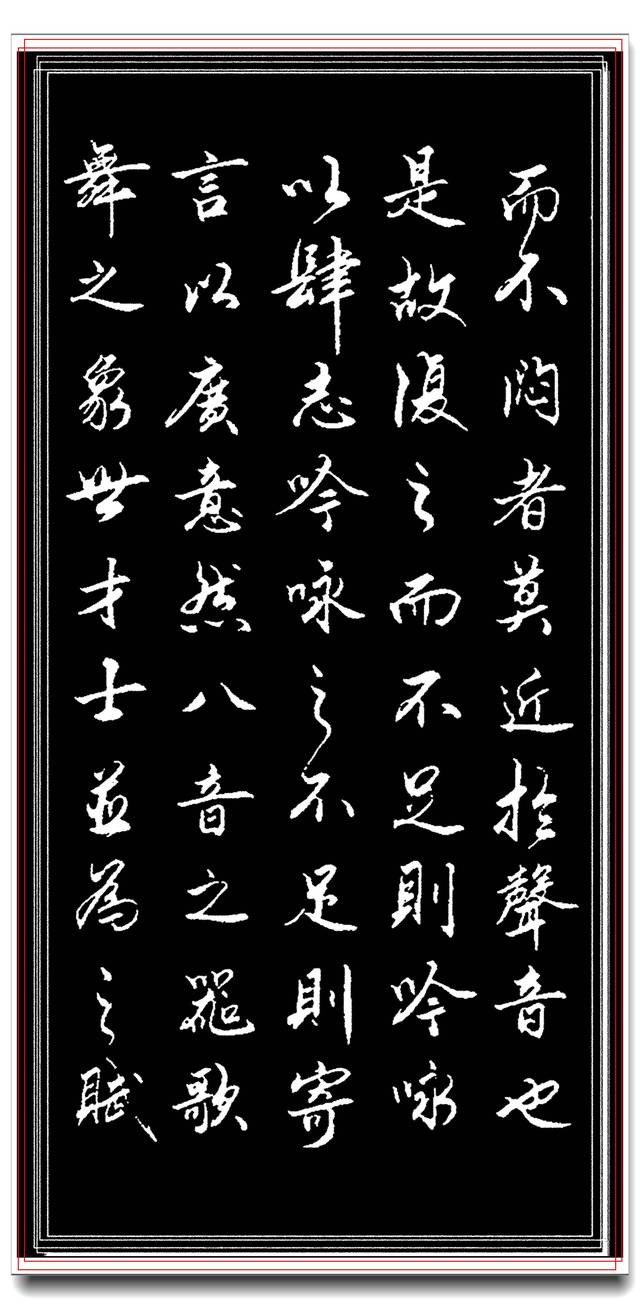 而不悶者莫近於聲音也
是故復之而不足則吟咏
以肆志吟咏之不足則寄
言以廣意然八音之器歌
舞之象世才士並為之賦